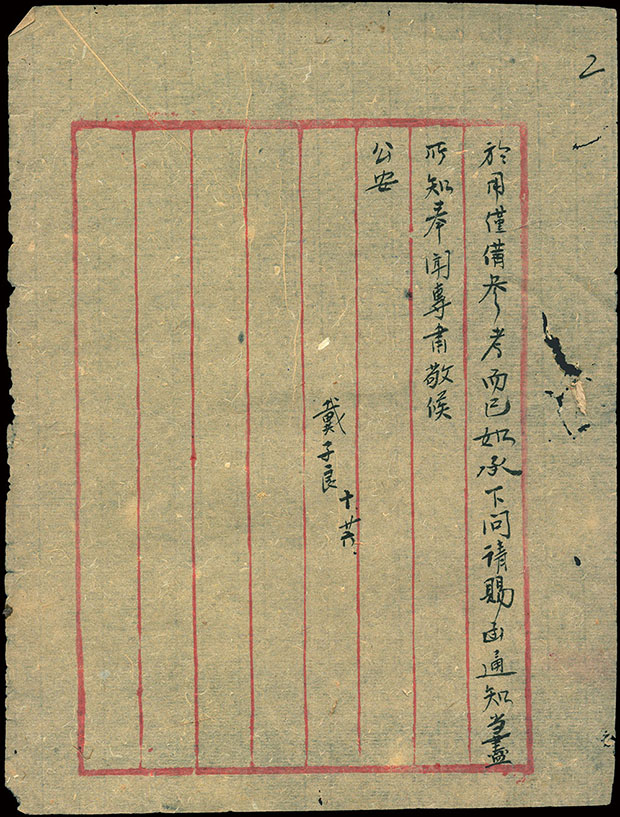 2
於用僅備參考而已如承下問請賜函通知當盡
所知奉聞專肅敬候
公安
戴子良 十.廿六.